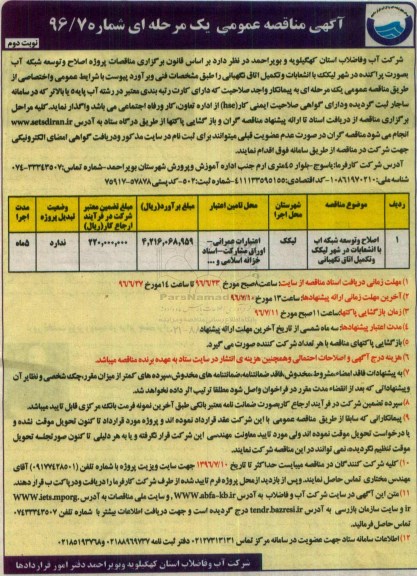 آگهی مناقصه عمومی یک مرحله ای شماره ۹۶/۷
نوبت دوم
شرکت آب وفاضلاب استان کهگیلویه وبویراحمد در نظر دارد بر اساس قانون برگزاری مناقصات پروژه اصلاح وتوسعه شبکه آب
بصورت پراکنده در شهر لیکک با انشعابات وتکمیل اتاق نگهبانی را طبق مشخصات فنی وبرآورد پیوست با شرایط عمومی واختصاصی از
طریق مناقصه عمومی یک مرحله ای به پیمانکار واجد صلاحیت که دارای کارت رتبه بندی معتبر در رشته آب پایه ۵ یا بالاتر که در سامانه
ساجار ثبت گردیده ودارای گواهی صلاحیت ایمنی کار(hse) از اداره تعاون،کار ورفاه اجتماعی می باشد واگذار نماید.کلیه مراحل
برگزاری مناقصه از دریافت اسناد تا ارائه پیشنهاد مناقصه گران و باز گشایی پاکتها از طریق درگاه ستاد به آدرس www.setadiran.ir
انجام می شود مناقصه گران در صورت عدم عضویت قبلی میتوانند برای ثبت نام در سایت مذکور ودریافت گواهی امضای الکترونیکی
جهت شرکت در مناقصه از طریق سامانه فوق اقدام نمایند.
آدرس شرکت کارفرما:یاسوج-بلوار ۴۵متری ارم جنب اداره آموزش وپرورش شهرستان بویراحمد-شماره تماس:۳۳۳۴۳۵۰۷-۰۷۴
شناسه ملی:۱۰۸۶۱۹۷۰۲۱۰-کداقتصادی:۴۱۱۱۳۳۵۹۵۱۵۵-شماره ثبت:۵۰۲-کدپستی:۵۷۸۷۸-۷۵۹۱۷
ردیف موضوع مناقصه شهرستان محل اجرا محل تامین اعتبار مبلغ برآورد(ریال) مبلغ تضمین معتبر شرکت در فرآیند ارجاع کار(ریال) وضعیت تبدیل پروژه مدت اجرا
۱ اصلاح وتوسعه شبکه آب با انشعابات در شهر لیکک وتکمیل اتاق نگهبانی لیکک اعتبارات عمرانی- اوراق مشارکت-اسناد خزانه اسلامی و... ۴,۲۱۶,۰۶۸,۹۵۹ ۲۲۰,۰۰۰,۰۰۰ ندارد ۵ماه
۱) مهلت زمانی دریافت اسناد مناقصه از سایت: ساعت۸صبح مورخ ۹۶/۶/۲۳ تا ساعت ۱۴ مورخ ۹۶/۶/۲۷
۲) آخرین مهلت زمانی ارائه پیشنهادها: ساعت۱۳ مورخ ۹۶/۷/۱۰
۳) زمان بازگشایی پاکتها: ساعت ۱۱ صبح مورخ ۹۶/۷/۱۱
۴) مدت اعتبار پیشنهادها: سه ماه شمسی از تاریخ آخرین مهلت ارائه پیشنهاد
۵) بازگشایی پاکتهای مناقصه با هر تعداد شرکت کننده صورت می گیرد.
۶) هزینه درج آگهی و اصلاحات احتمالی وهمچنین هزینه ی انتشار در سایت ستاد به عهده برنده مناقصه میباشد.
۷) به پیشنهادات فاقد امضاء،مشروط،مخدوش،فاقد ضمانتنامه،ضمانتنامه های مخدوش،سپرده های کمتر از میزان مقرر،چک شخصی و نظایر آن
وپیشنهاداتی که بعد از انقضاء مدت مقرر در فراخوان واصل شود مطلقا ترتیب اثر داده نخواهد شد.
۸) سپرده تضمین شرکت در فرآیند ارجاع کاربصورت ضمانت نامه معتبر بانکی طبق آخرین نمونه فرمت بانک مرکزی قابل تایید میباشد.
۹) پیمانکارانی که سابقا از طریق مناقصه عمومی با این شرکت عقد قرارداد نموده اند و پروژه مورد قرارداد تا کنون تحویل موقت نشده و
یا درخواست تحویل موقت نموده اند ولی مورد تایید معاونت مهندسی این شرکت قرار نگرفته و یا به هر دلیلی تا کنون صورتجلسه تحویل
موقت تنظیم نگردیده، نمی توانند در این مناقصه شرکت نمایند.
۱۰) کلیه شرکت کنندگان در مناقصه میبایست حداکثر تا تاریخ ۱۳۹۶/۷/۱۰ جهت سایت ویزیت پروژه با شماره تلفن (۰۹۱۷۷۴۲۸۵۰۱) آقای
مهندس مختاری تماس حاصل نمایند. وپس از بازدید از محل پروژه فرم تایید شده از طرف شرکت کارفرما را دریافت ودرپاکت ب قرار دهند.
۱۱) متن این آگهی در سایت شرکت آب و فاضلاب به آدرس WWW.abfa-kb.ir و سایت ملی مناقصات به آدرس WWW.iets.mporg.
ir و سایت سازمان بازرسی به آدرس tendr.bazresi.ir درج گردیده است و جهت دریافت اطلاعات بیشتر با شماره تلفن ۰۷۴۳۳۳۴۳۵۰۷
تماس حاصل فرمائید.
۱۲) اطلاعات سامانه ستاد جهت عضویت در سامانه مرکز تماس ۰۲۱۲۷۳۱۳۱۳۱ دفتر ثبت نامه ۰۲۱۸۸۹۶۹۷۳۷ و ۰۲۱۸۵۱۹۳۷۶۸
شرکت آب وفاضلاب استان کهگیلویه وبویراحمد دفتر امور قراردادها